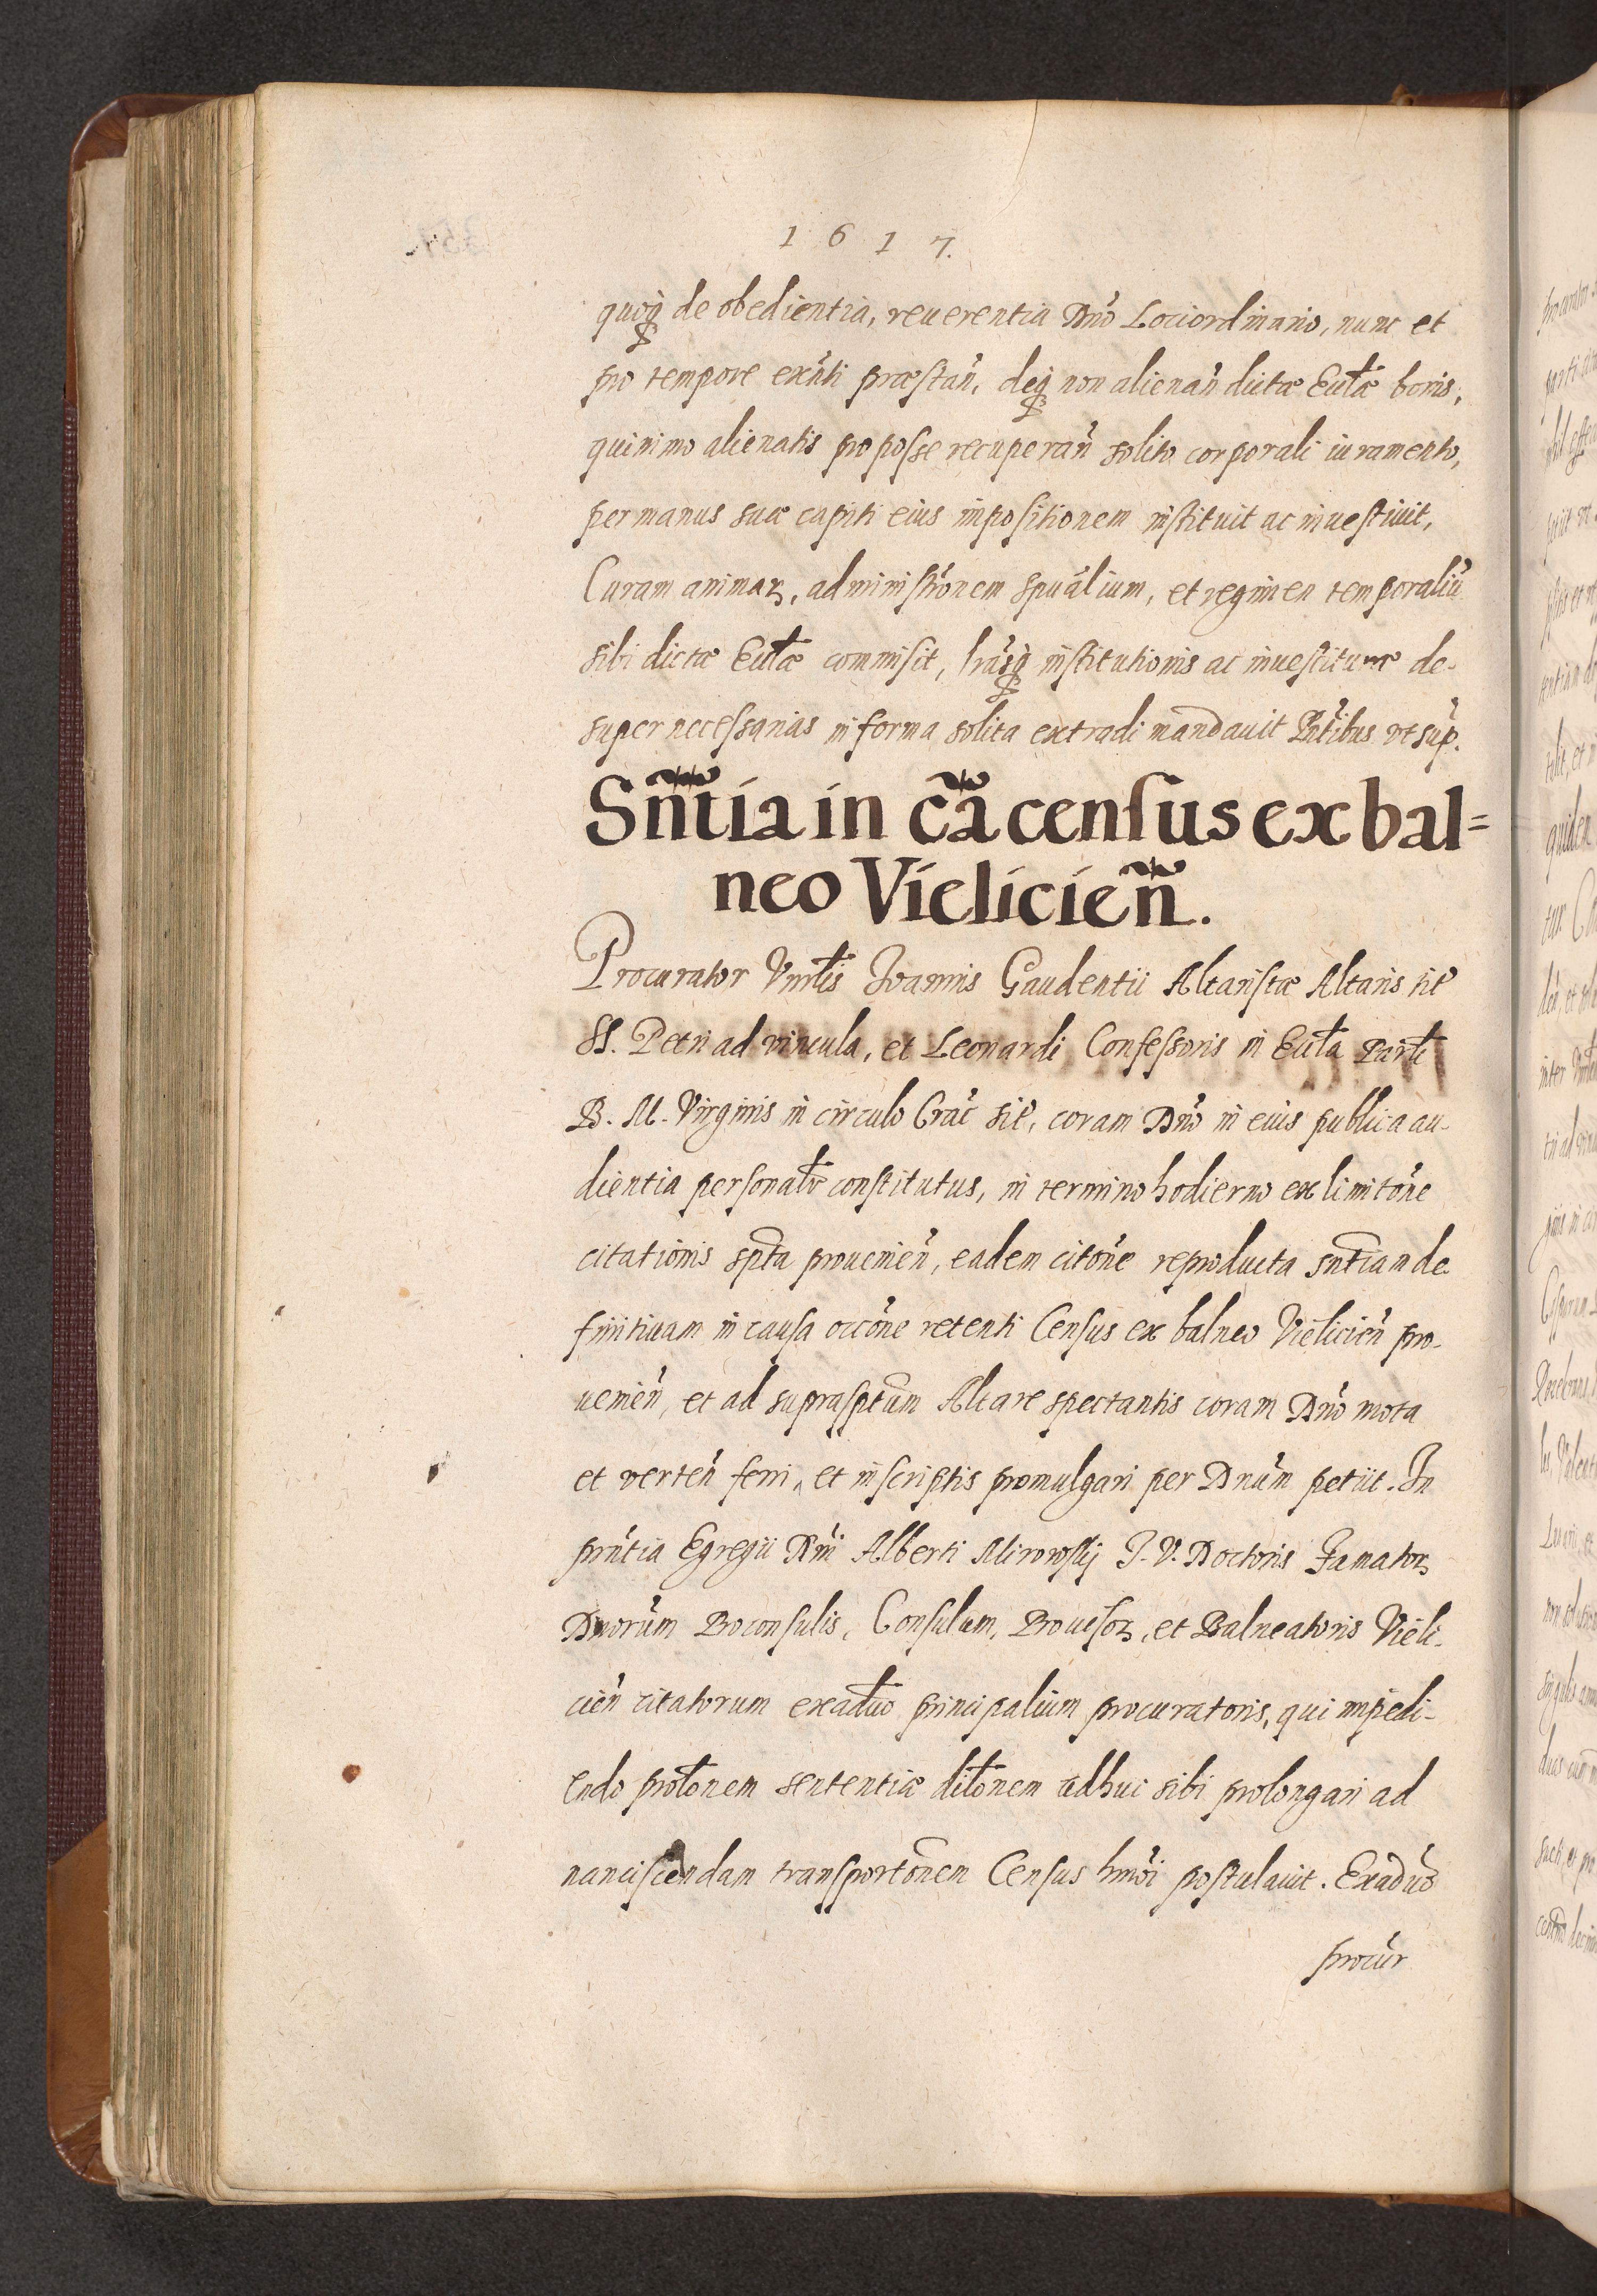 1 6 1 7.
quoq̃ de obedientia, reuerentia Dnõ Lociordinario, nunc et
pro tempore exñti præstañ, deq̃ non alienañ dictæ Eccłæ bonis,
quinimo alienatis pro posse recuperañ solito corporali iuramento,
per manus suæ capiti eius impositionem instituit ac inuestiuit,
Curam animarꝫ, administrõnem spũalium, et regimen temporaliũ
sibi dictæ Eccłæ commisit, lrãsq̃ institutionis ac inuestituræ de-
super necessarias in forma solita extradi mandauit Pñtibus vt sup̃.
Sñtia in cã census ex bal=
neo Vieliciẽn.
Procurator Vnrłis Ioannis Gaudentii Altaristæ Altaris titł
SS. Petri ad vincula, et Leonardi Confessoris in Eccła Parłi
B. M. Virginis in circulo Crač sit̃, coram Dnõ in eius publica au-
dientia personałr constitutus, in termino hodierno ex limitõne
citationis sp̃ta proueniẽn, eadem citõne reproducta sñtiam de-
finitiuam in causa occõne retenti Census ex balneo Vieliciẽn pro-
ueniẽn, et ad suprasp̃tũm Altare spectantis coram Dnõ mota
et vertẽn ferri, et in scriptis promulgari per Dnũm petiit. In
prñtia Egregii Dñi Alberti Mirowskij I. V. Doctoris Famatorꝫ
Dnorũm Proconsulis, Consulum, Prouisorꝫ, et Balneatoris Vieli-
ciẽn citatorum ex aduo principalium procuratoris, qui impedi-
endo prołonem sententiæ diłonem adhuc sibi prolongari ad
nanciscendam transportõnem Census hmõi postulauit. Ex aduõ
procũr